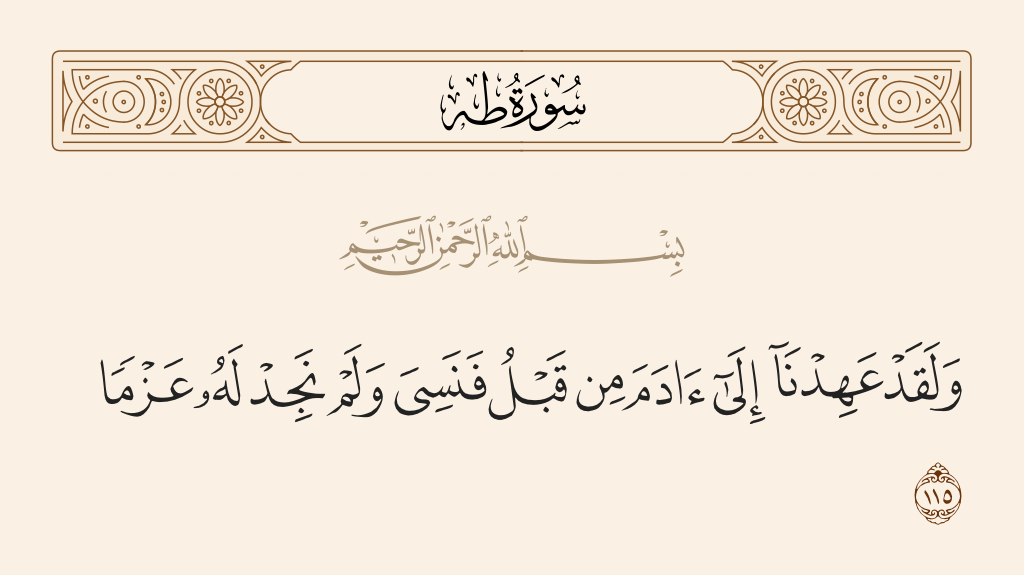 سُورَةُ طه
بِسْمِ ٱللَّهِ ٱلرَّحْمَٰنِ ٱلرَّحِيمِ
وَلَقَدْ عَهِدْنَآ إِلَىٰٓ ءَادَمَ مِن قَبْلُ فَنَسِىَ وَلَمْ نَجِدْ لَهُۥ عَزْمًا
١١٥